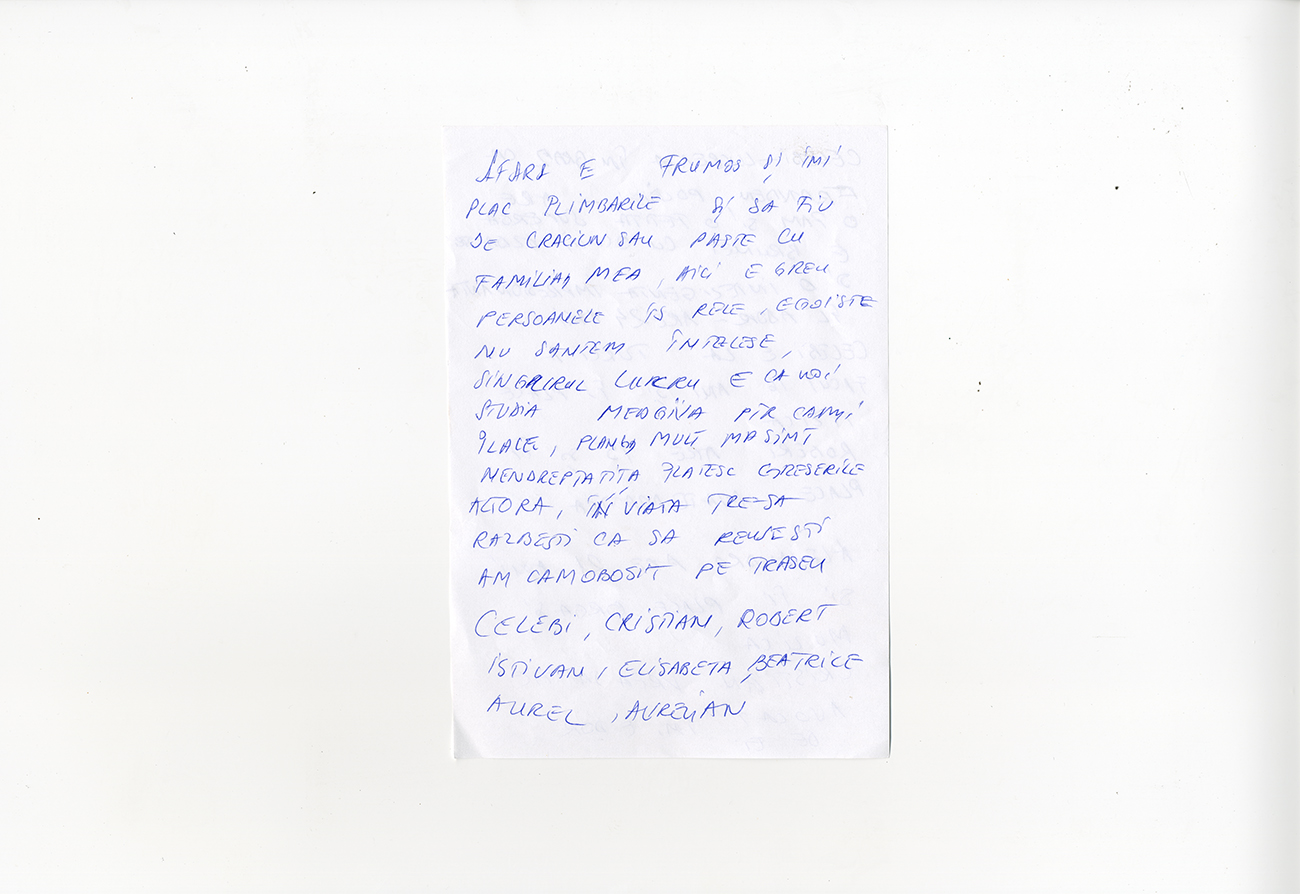 AFARA E FRUMOS ȘI ÎMI
PLAC PLIMBARILE ȘI SA FIU
DE CRACIUN SAU PASTE CU
FAMILIA MEA, AICI E GREU
PERSOANELE ÎS RELE, EGOISTE
NU SANTEM ÎNTELESE,
SINGRIRUL LUKCRU E CA VOI
STUDIA MEDGINA PTR CAMYI
PLACE, PLANG MULT MA SIMT
NENDREPTATITA PLATESC GRESERILE
ALTORA, ÎN VIATA TRE-SA
RAZBESTI CA SA REUSESTI
AM CAMOBOSIT PE TRASEU
CELEBI, CRISTIAN, ROBERT
ISTIVAN, ELISABETA, BEATRICE
AUREL, AURELIAN